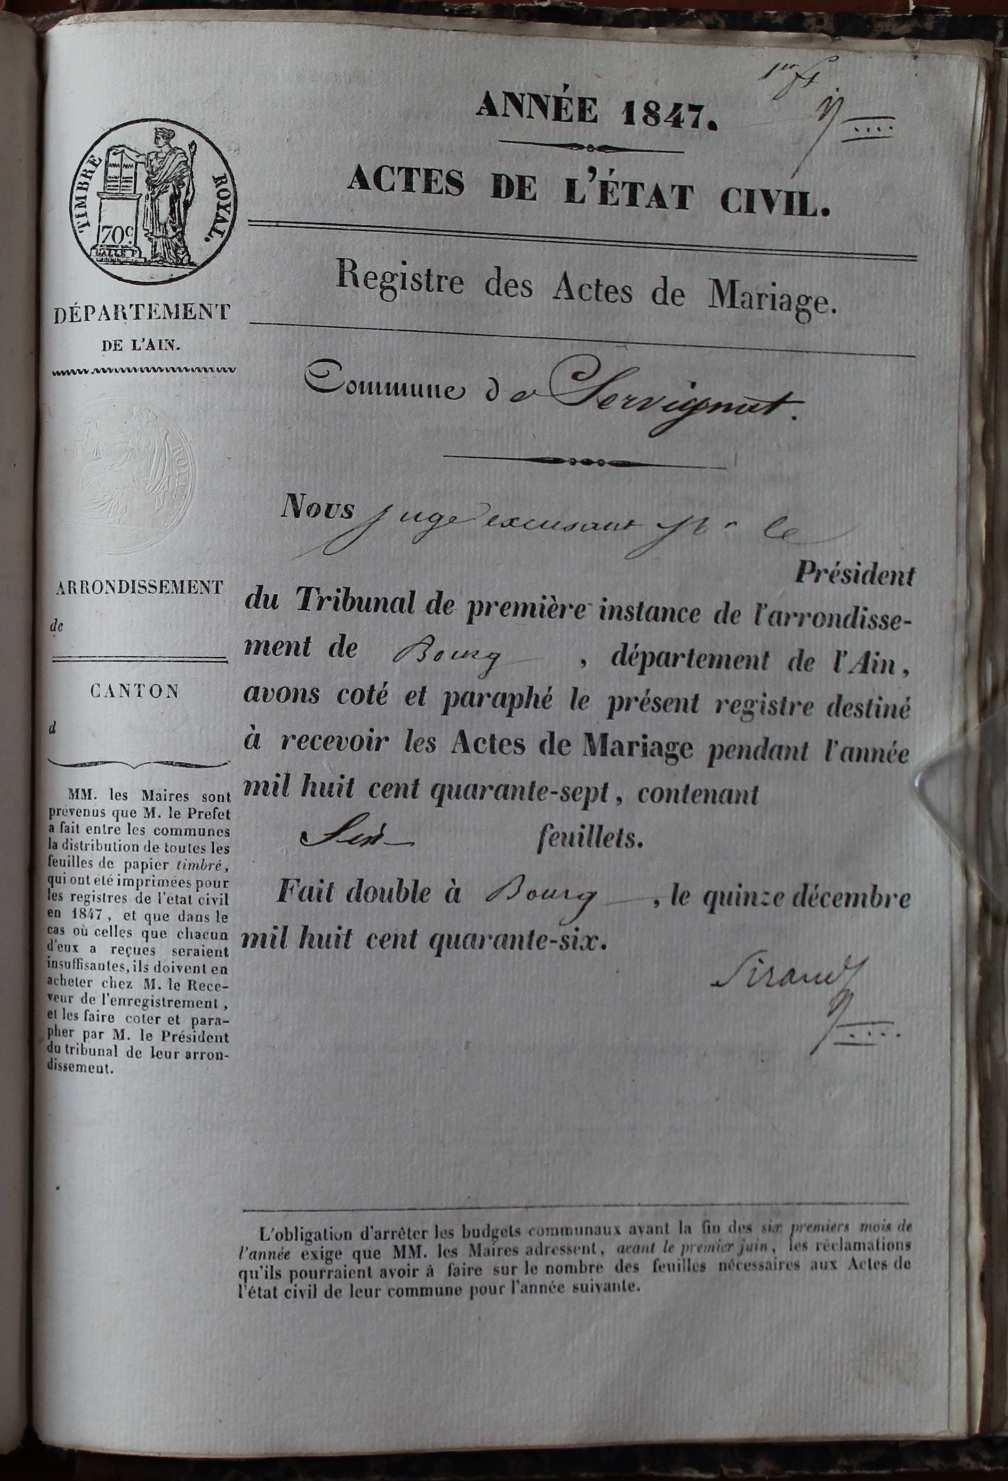 1er f.t
ANNÉE 1847.
ACTES DE L'ÉTAT CIVIL.
Registre des Actes de Mariage.
Commune de Servignat.
TIMBRE ROYAL.
70c
DÉPARTEMENT
DE L'AIN.
ARRONDISSEMENT
de
CANTON
d
MM. les Maires sont
prévenus que M. le Prefet
a fait entre les communes
la distribution de toutes les
feuilles de papier timbré,
qui ont été imprimées pour
les registres de l'état civil
en 1847, et que dans le
cas où celles que chacun
d'eux a reçues seraient
insuffisantes, ils doivent en
acheter chez M. le Rece-
veur de l'enregistrement,
et les faire coter et para-
pher par M. le Président
du tribunal de leur arron-
dissement.
Nous juge excusant Mr le
Président
du Tribunal de première instance de l'arrondisse-
ment de Bourg, département de l'Ain,
avons coté et paraphé le présent registre destiné
à recevoir les Actes de Mariage pendant l'année
mil huit cent quarante-sept, contenant
Six feuillets.
Fait double à Bourg, le quinze décembre
mil huit cent quarante-six.
Sirand
L'obligation d'arrêter les budgets communaux avant la fin des six premiers mois de
l'année exige que MM. les Maires adressent, avant le premier juin, les réclamations
qu'ils pourraient avoir à faire sur le nombre des feuilles nécessaires aux Actes de
l'état civil de leur commune pour l'année suivante.